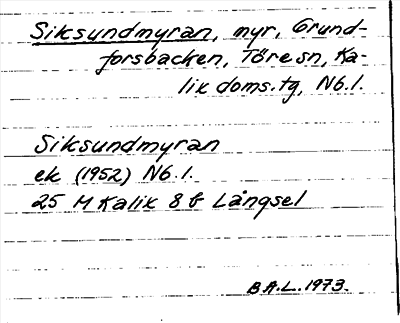 Siksundmyran, myr, Grund-
forsbacken, Töre sn, Ka-
lix doms.tg, Nb.l.
Siksundmyran
ek (1952) Nb.l.
25 M Kalix 8 b Långsel
B A.L. 1973.